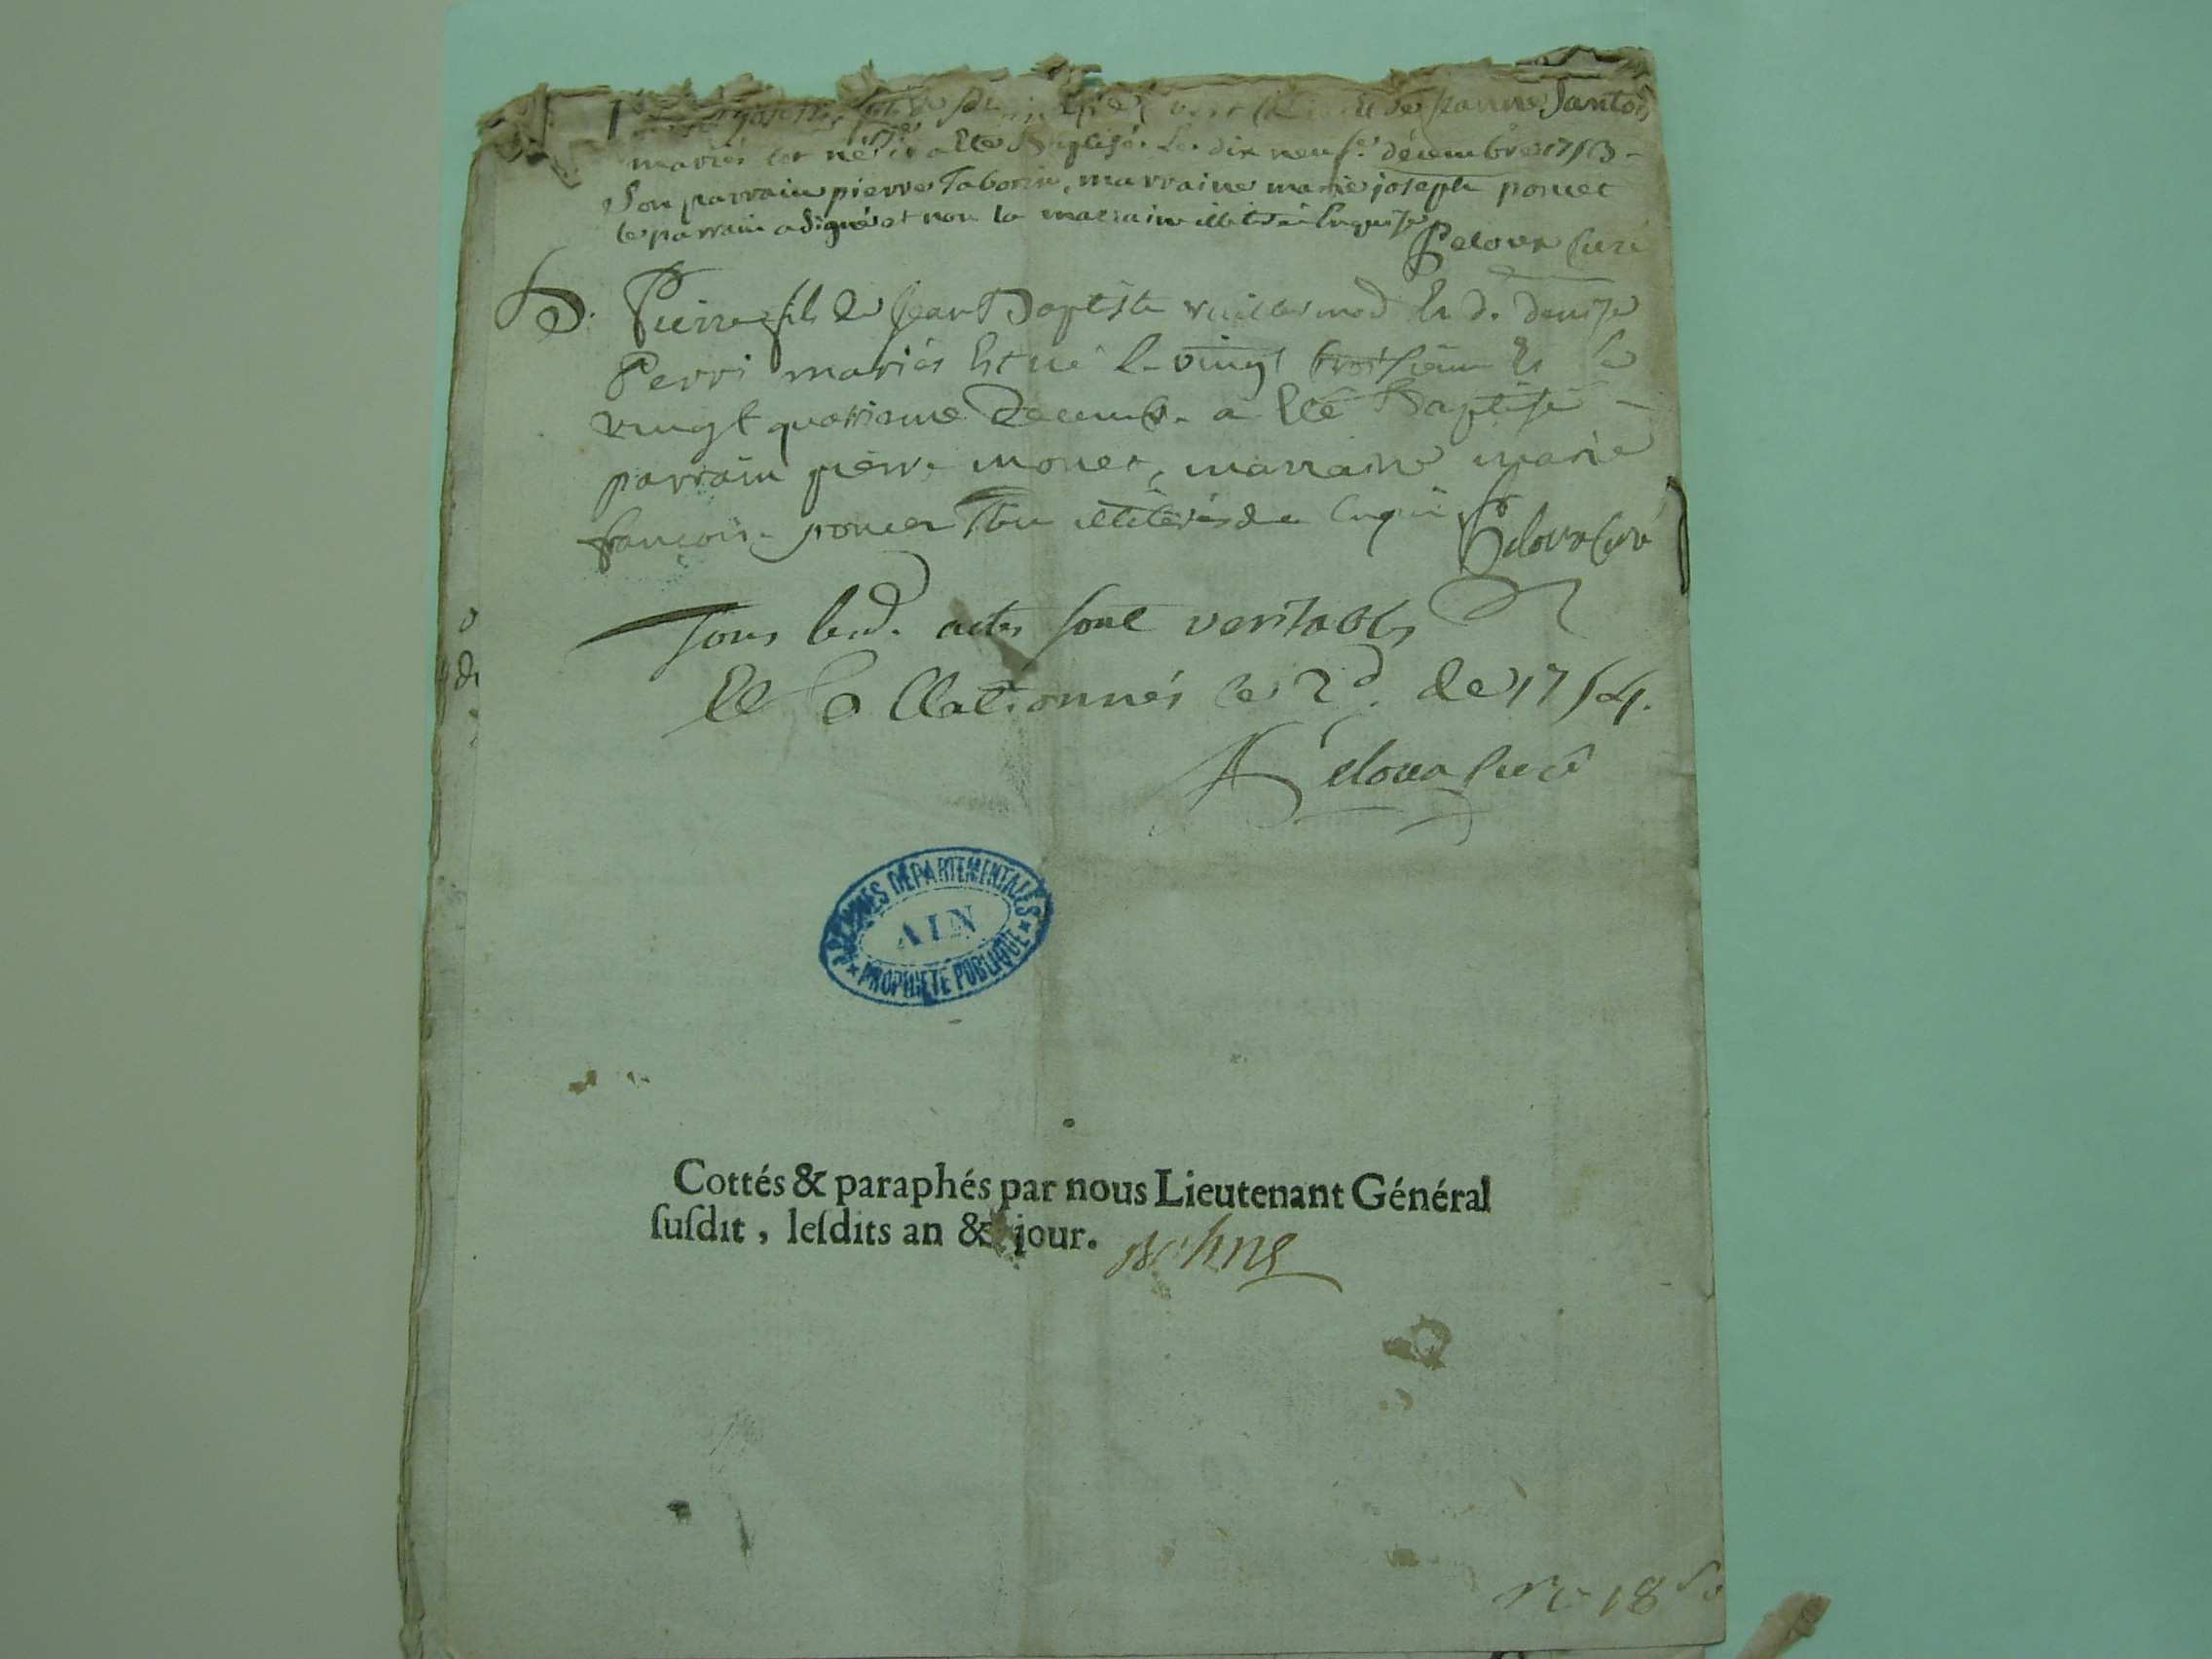 de jeanne Jantod
mariés est né et a ete Baptisé le dix neuf.e décembre 1753 -
Son parrain pierre Taborin, marraine marie joseph poncet
le parrain a signé et non la marraine illiterée enquise
Peloux curé
B. Pierre fils de Jean Baptiste vuillermod et d. denise
Perri mariés est né le vingt troisieme et le
vingt quatrieme decemb. a été Baptisé -
parrain pierre monet, marraine marie
françoise poncet tou illiterés de enquis Peloux curé
Tous lesd. actes sont veritables
et Collationnés le 2d. de 1754.
Peloux curé
ARCHIVES DÉPARTEMENTALES
AIN
PROPRIÉTÉ PUBLIQUE
Cottés & paraphés par nous Lieutenant Général
ſuſdit, leſdits an & jour.
18